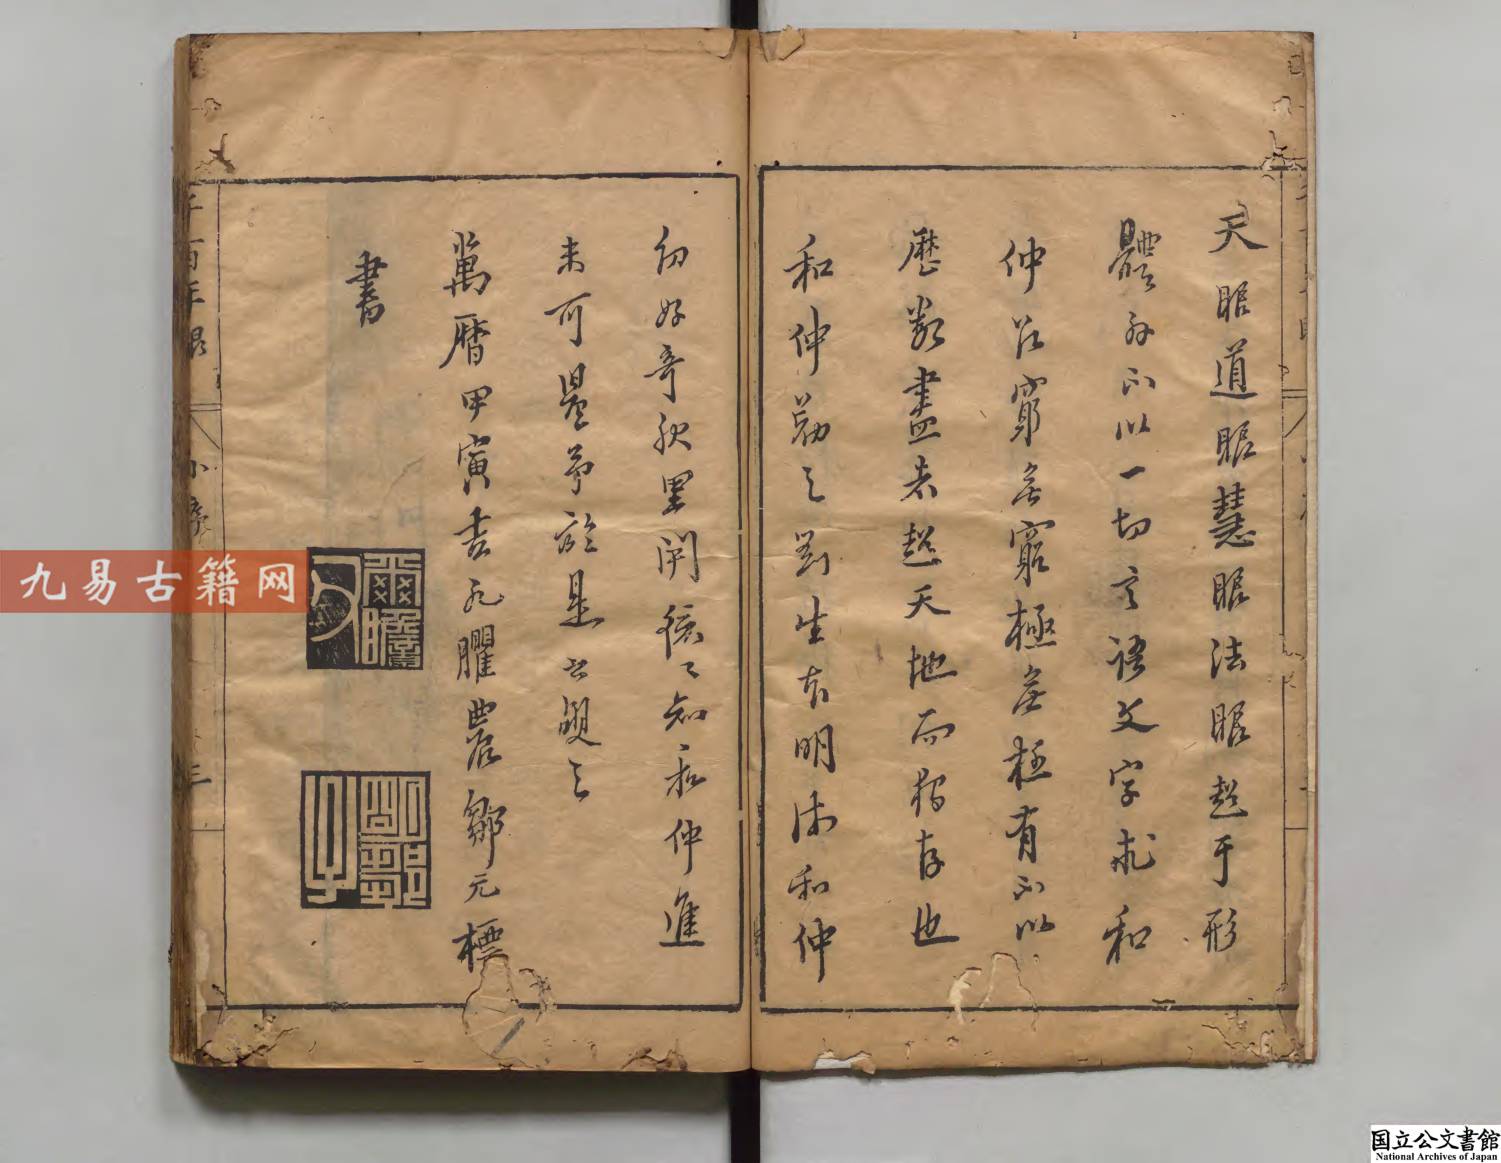 天眼道眼慧眼法眼超于形
體外不以一切言語文字求和
仲欲窮無窮極無極有不以
歷數盡者超天地而獨存也
和仲勗之劉生孝明沛和仲
幼好奇秋里開後之知和仲進
未可量予於是書嘅之
萬曆甲寅吉水臞農鄒元標
書
爾瞻
鄒
小序
三
九易古籍网
国立公文書館
National Archives of Japan